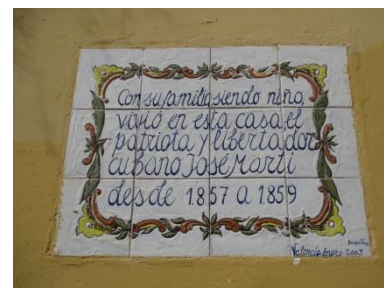 Con su familia siendo niño,
vivió en esta casa el
patriota y libertador
cubano José Martí
desde 1857 a 1859
Valencia Enero 2003